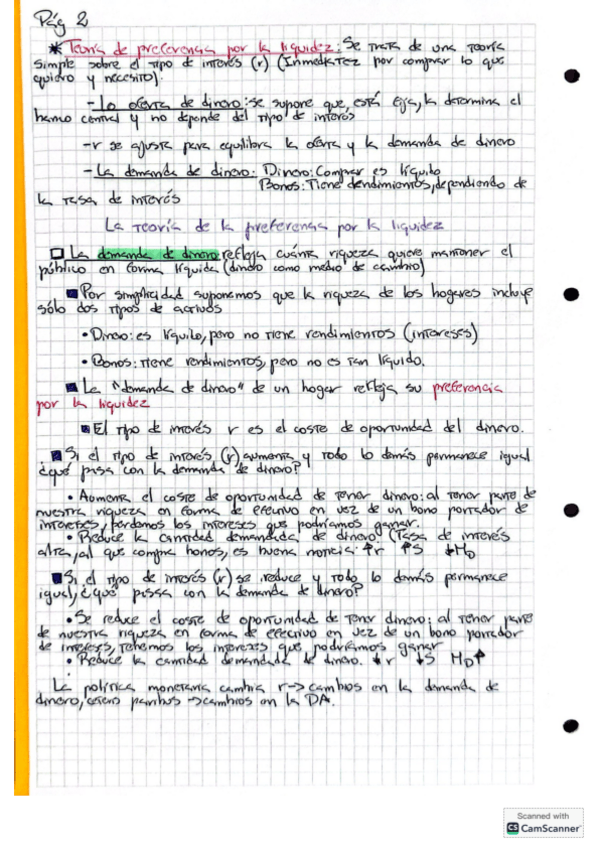 Pág 2
* Teoría de preferencia por la liquidez: Se trata de una teoría
simple sobre el tipo de interés (r) (Inmediatez por comprar lo que
quiero y necesito).
- La oferta de dinero: se supone que, está fija, la determina el
banco central y no depende del tipo de interés
- r se ajusta para equilibra la oferta y la demanda de dinero
- La demanda de dinero: Dinero: Comprar es líquido
Bonos: Tiene dendimientos, dependiendo de
la tasa de interés
La Teoría de la preferencia por la liquidez
La demanda de dinero refleja cuánta riqueza quiere mantener el
público en forma líquida (dinero como medio de cambio)
Por simplicidad suponemos que la riqueza de los hogares incluye
sólo dos tipos de activos
• Dinero: es líquido, pero no tiene rendimientos (intereses)
• Bonos: tiene rendimientos, pero no es tan líquido.
La "demanda de dinero" de un hogar refleja su preferencia
por la liquidez
El tipo de interés r es el coste de oportunidad del dinero.
Si el tipo de interés (r) aumenta y todo lo demás permanece igual
¿qué pasa con la demanda de dinero?
• Aumenta el coste de oportunidad de tener dinero: al tener parte de
nuestra riqueza en forma de efectivo en vez de un bono portador de
intereses, perdemos los intereses que podríamos ganar.
• Reduce la cantidad demandada de dinero (Tasa de interés
alta, al que compra bonos, es buena noticia. ↑r ↑S ↓MD
Si el tipo de interés (r) se reduce y todo lo demás permanece
igual, ¿qué passa con la demanda de dinero?
• Se reduce el coste de oportunidad de tener dinero: al tener parte
de nuestra riqueza en forma de efectivo en vez de un bono portador
de intereses, tenemos los intereses que podríamos ganar
• Reduce la cantidad demandada de dinero. ↓r ↓S MD↑
La política monetaria cambia r → cambios en la demanda de
dinero, ceteris paribus → cambios en la DA.
Scanned with
CS CamScanner